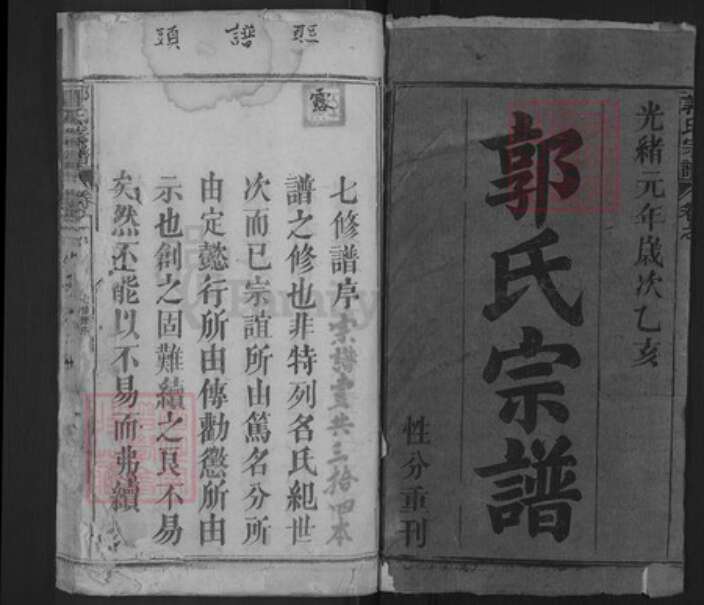 光緒元年歲次乙亥
郭氏宗譜
性分重刊
郭氏宗譜
卷之
照譜頭
露
七修譜序
宗譜壹共三拾四本
譜之修也非特列名氏紀世
次而已宗誼所由篤名分所
由定懿行所由傳勸懲所由
示也創之固難續之良不易
矣然不能以不易而弗續
郭氏宗譜